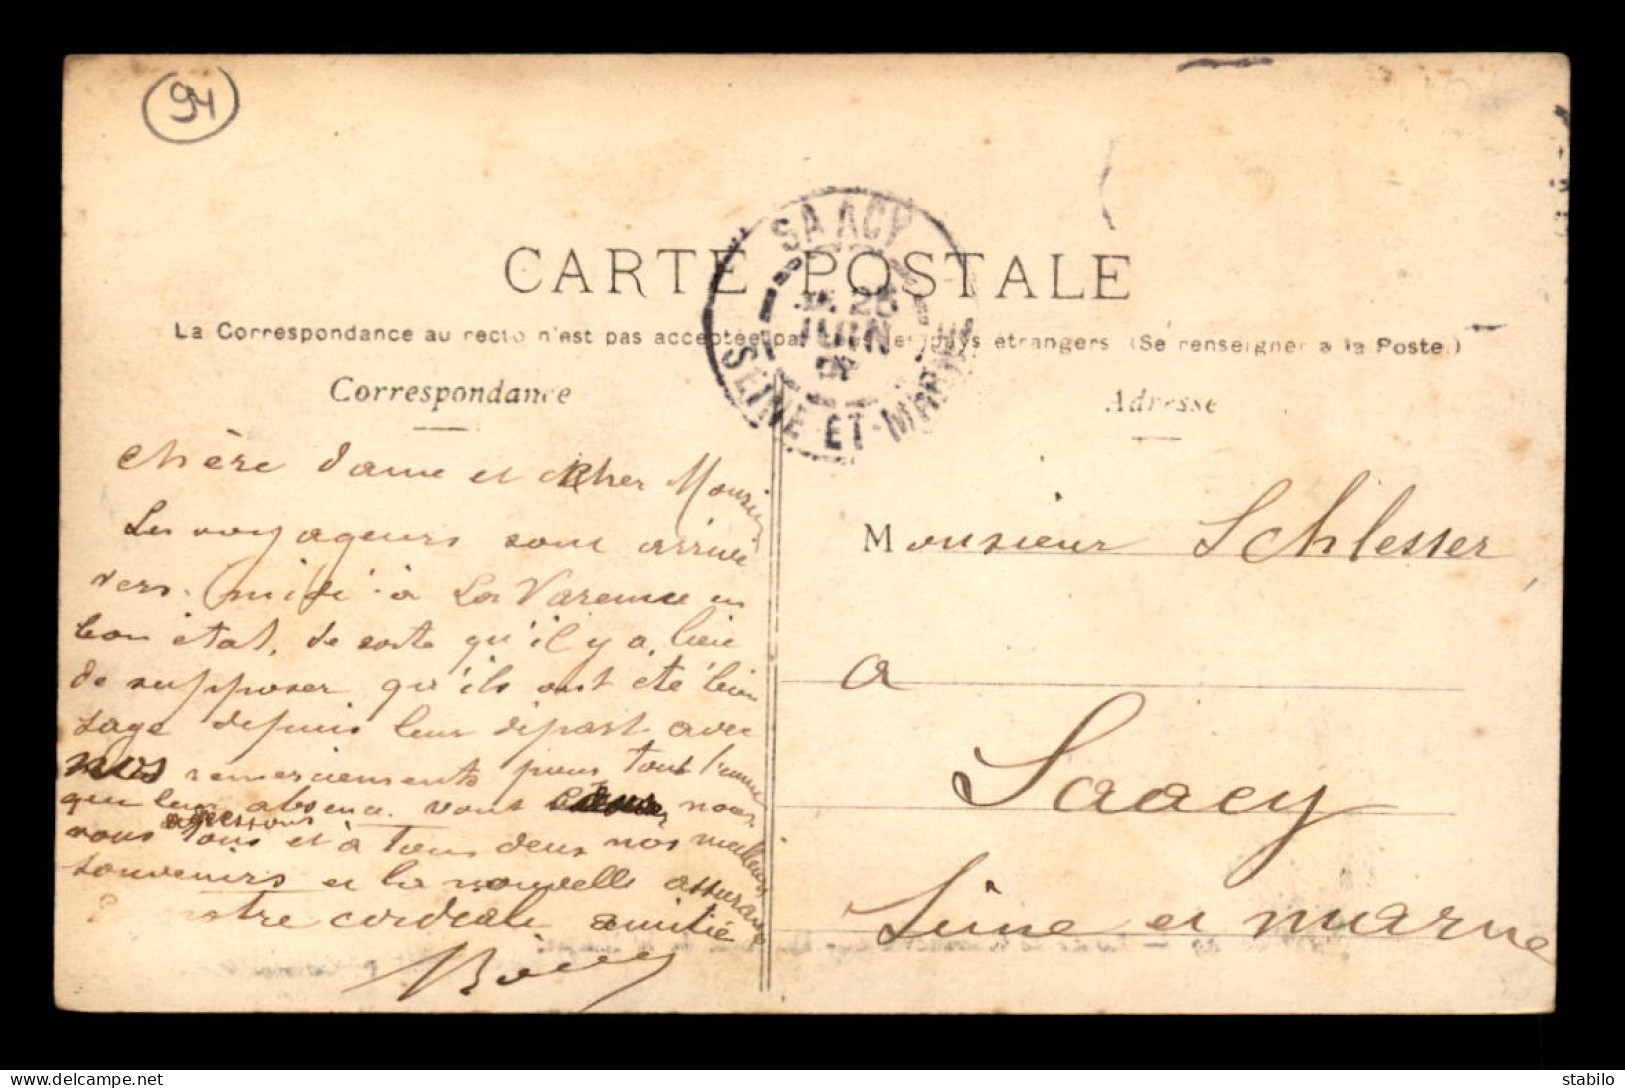 94
SAACY
25
JUIN
SEINE-ET-MARNE
CARTE POSTALE
La Correspondance au recto n'est pas acceptée par tous les pays étrangers (Se renseigner à la Poste.)
Correspondance
chère dame et cher Monsieur
Les voyageurs sont arrivé
vers midi à La Varenne en
bon état, de sorte qu'il y a lieu
de supposer qu'ils ont été bien
sage depuis leur départ avec
nos remerciements pour tout l'ennui
que leur absence vont nous
vous tous et à tous deux nos meilleurs
souvenirs et la nouvelle assurance
notre cordiale amitié
Adresse
Monsieur Schlesser
a
Saacy
Seine et marne
delcampe.net
stabilo